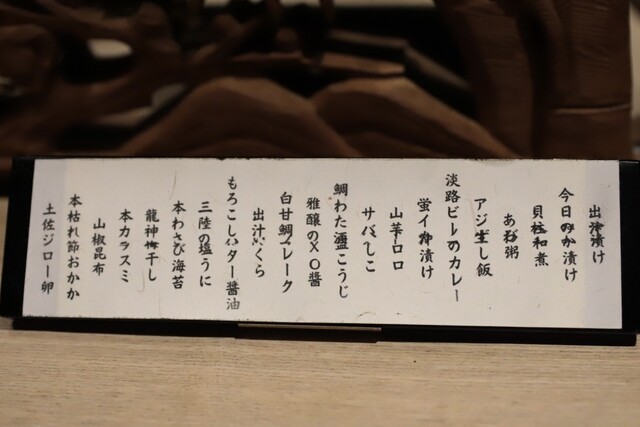 漬け
今日のぬか漬け
貝柱和煮
粥
アジ し飯
淡路ビレのカレー
蛍イカ沖漬け
山芋トロロ
サバへしこ
鯛わた こうじ
雅醸のXO醤
白甘鯛フレーク
出汁いくら
もろこしバター醤油
三陸の塩うに
本わさび海苔
龍神梅干し
本カラスミ
山椒昆布
本枯れ節おかか
土佐ジロー卵